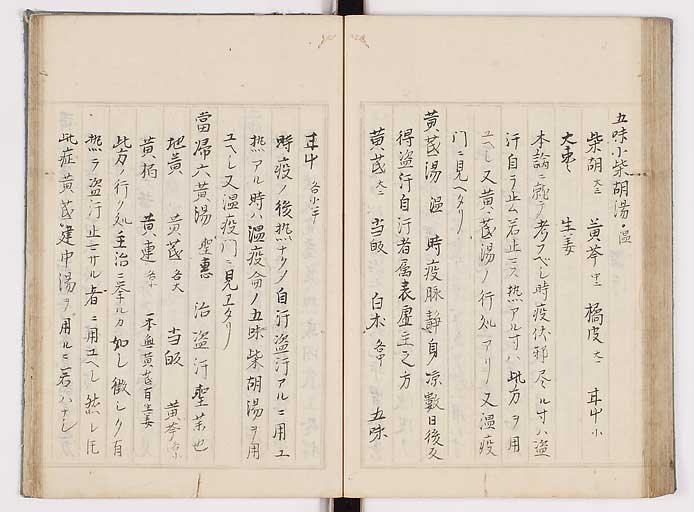 五味小柴胡湯 温
柴胡 大三 黄芩 中二 橘皮 大一 甘中 小
大棗 生姜
本論ニ就テ考ヘシ時疫伏邪尽ル寸ハ盗
汗自ラ止ム若止ミス熱アル寸ハ此方ヲ用
ユヘシ又黄芪湯ノ行処アリ又温疫
門ニ見ヘタリ
黄芪湯 温 時疫脉静身凉數日後反
得盗汗自汗者属表虚主之方
黄芪 大三 当皈 白朮 各中 五味
甘中 各小半
時疫ノ後熱ナク自汗盗汗アルニ用ユ
熱アル時ハ温疫論ノ五味柴胡湯ヲ用
ユヘシ又温疫門ニ見ヱタリ
當帰六黄湯 聖惠 治盗汗聖薬也
地黄 黄芪 各大 当皈 黄芩
黄栢 黄連 各小 一本無黄芪有生姜
此方ノ行ク処主治ニ挙ルカ如し徴しク有
熱ラ盗汗止ミサル者ニ用ユヘし然し圧
此症黄芪建中湯ヲ用ルニ若ハナし